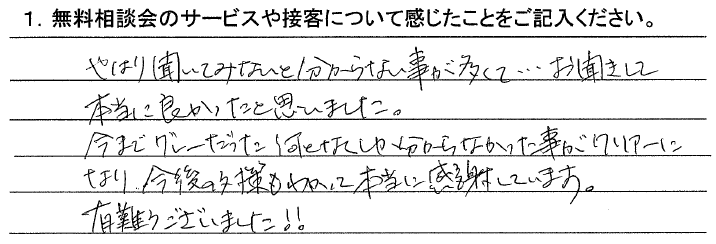 1. 無料相談会のサービスや接客について感じたことをご記入ください。
やはり聞いてみないと分からない事が多くて…お聞きして
本当に良かったと思いました。
今までグレーだった何となくしか分からなかった事がクリアーに
なり、今後の仕様もわかって本当に感謝しています。
有難うございました!!